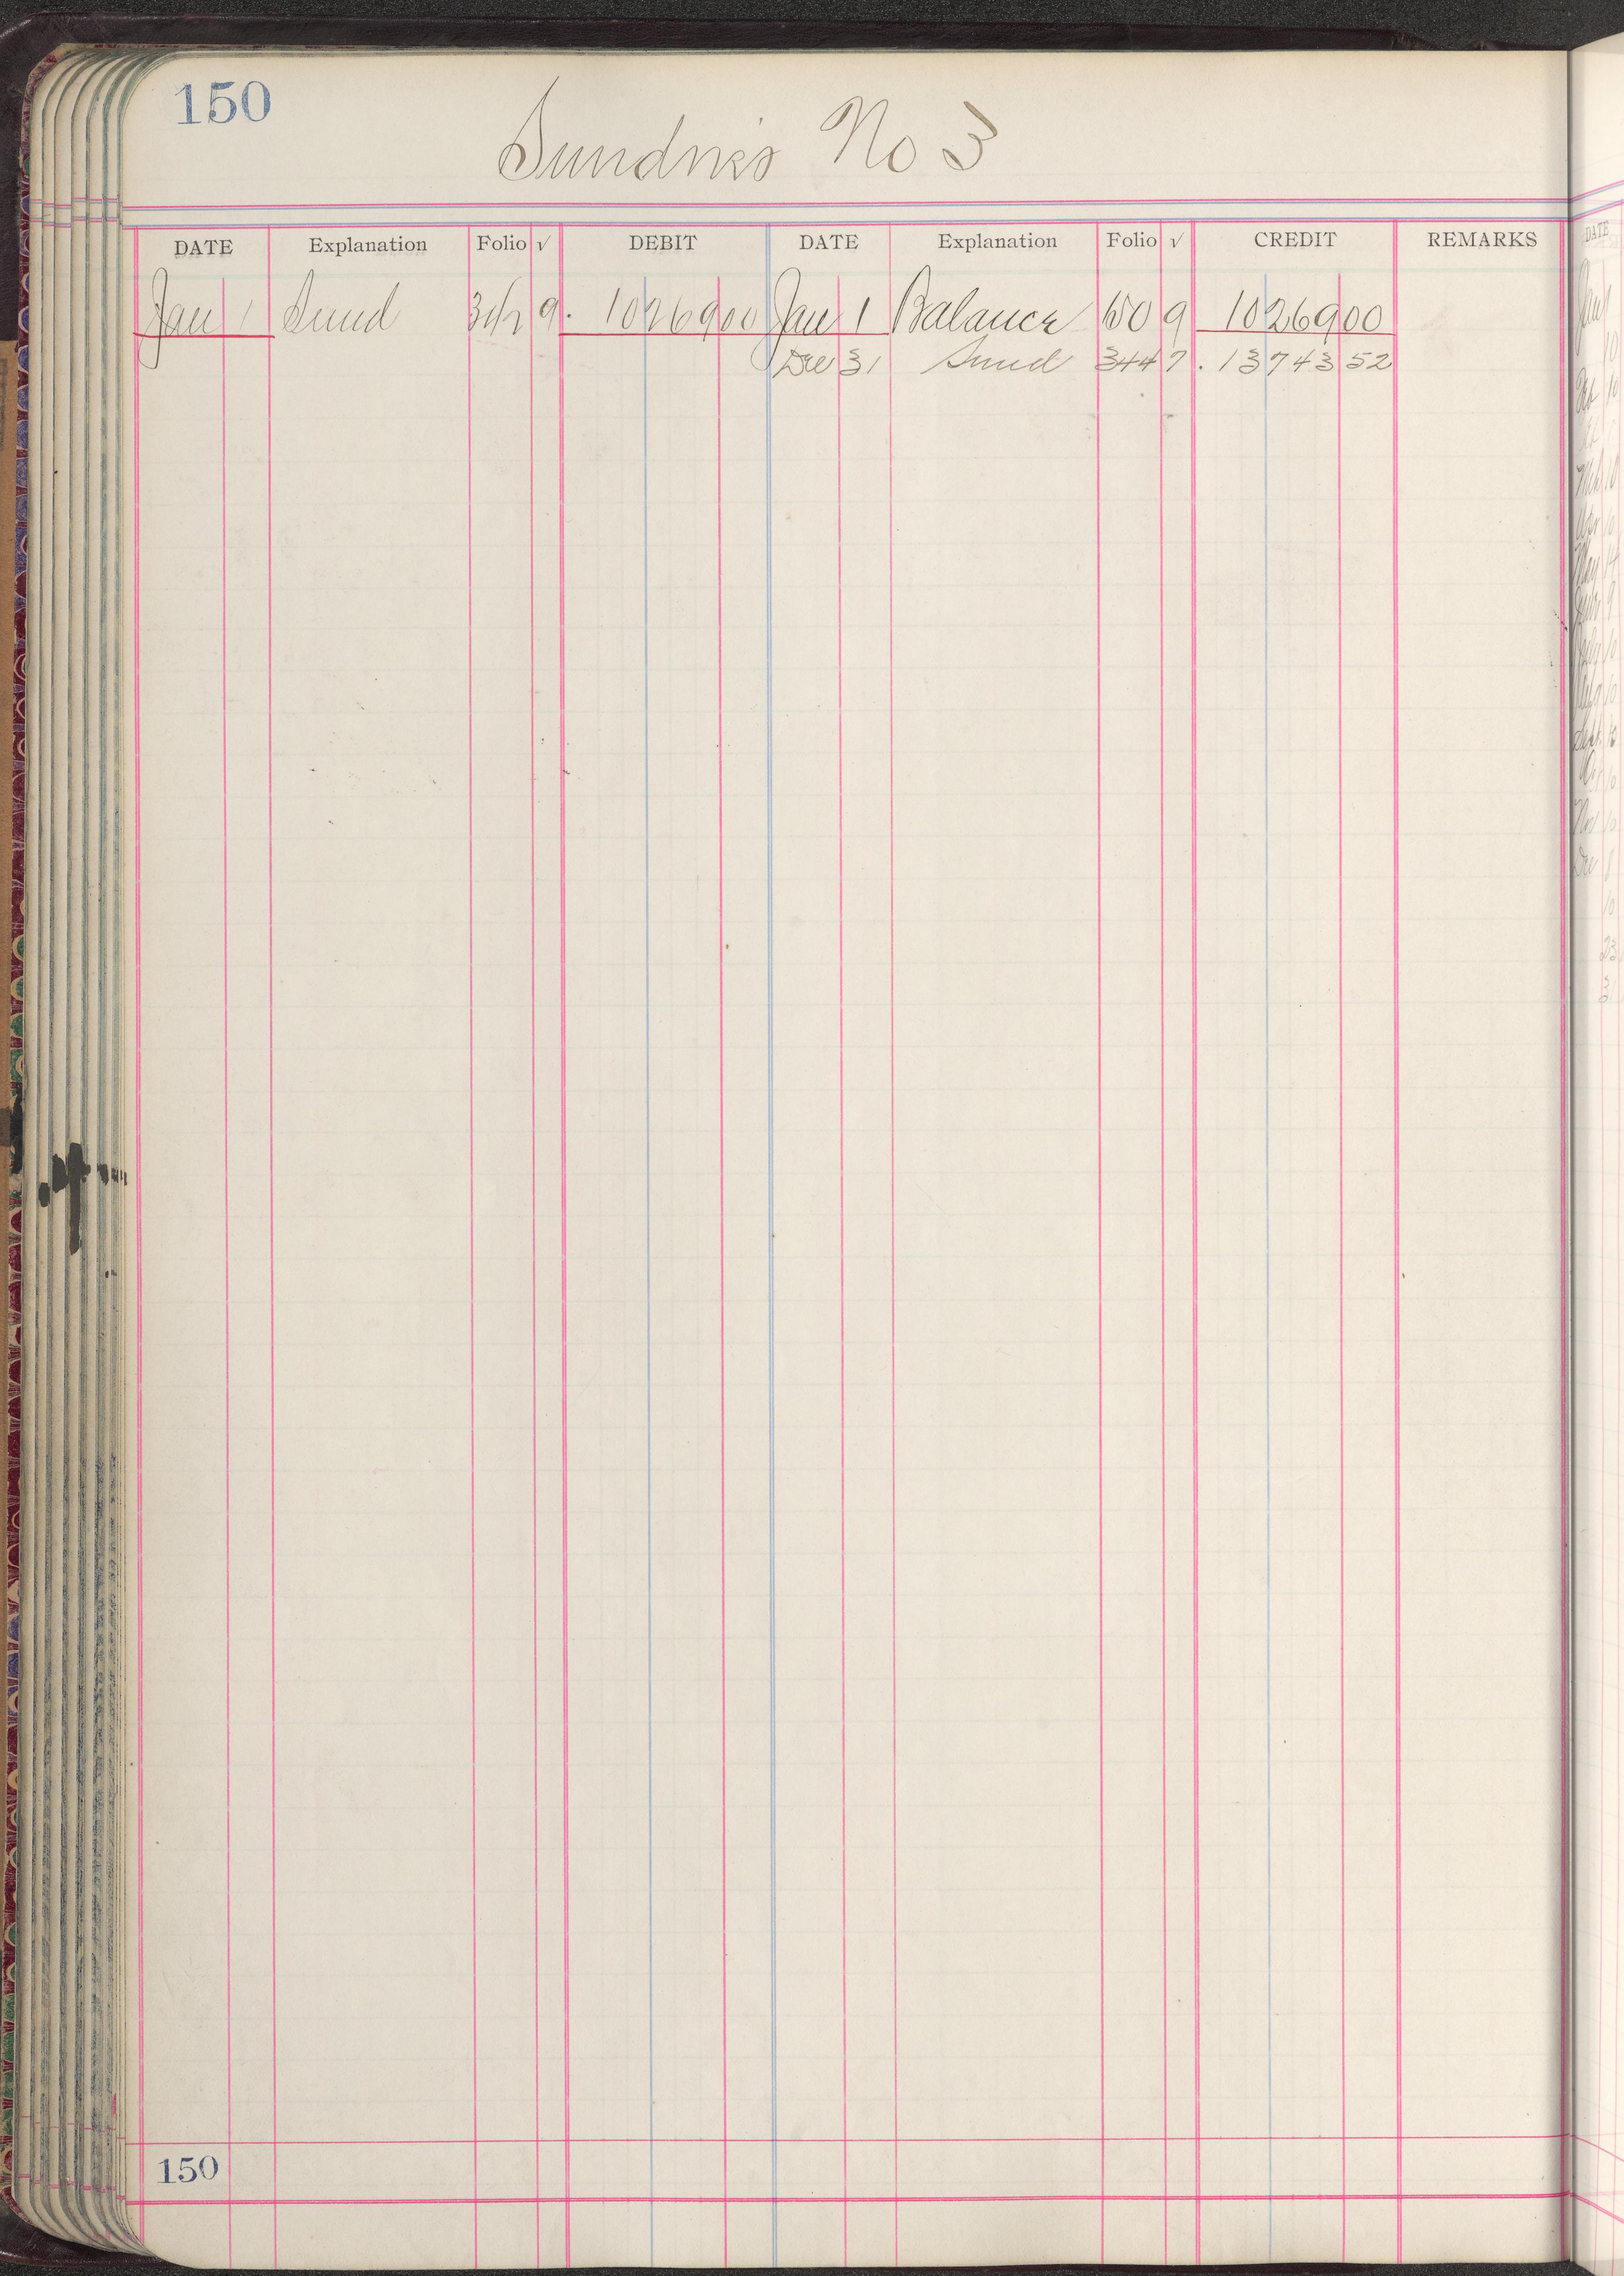 150
Sundries No 3
DATE Explanation Folio √ DEBIT DATE Explanation Folio √ CREDIT REMARKS
Jan 1 Sund 9. 10269 00 Jan 1 Balance 150 9 10269 00
Dec 31 Sund 344 7. 13743 52
150
DATE